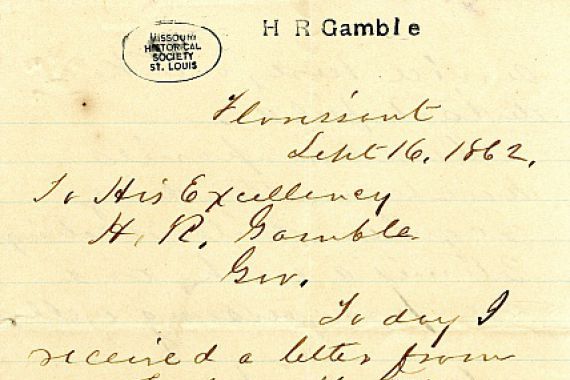 MISSOURI
HISTORICAL
SOCIETY
ST. LOUIS
H R Gamble
Florissant
Sept 16. 1862.
To His Excellency
H. R. Gamble
Gov.
To day I
received a letter from